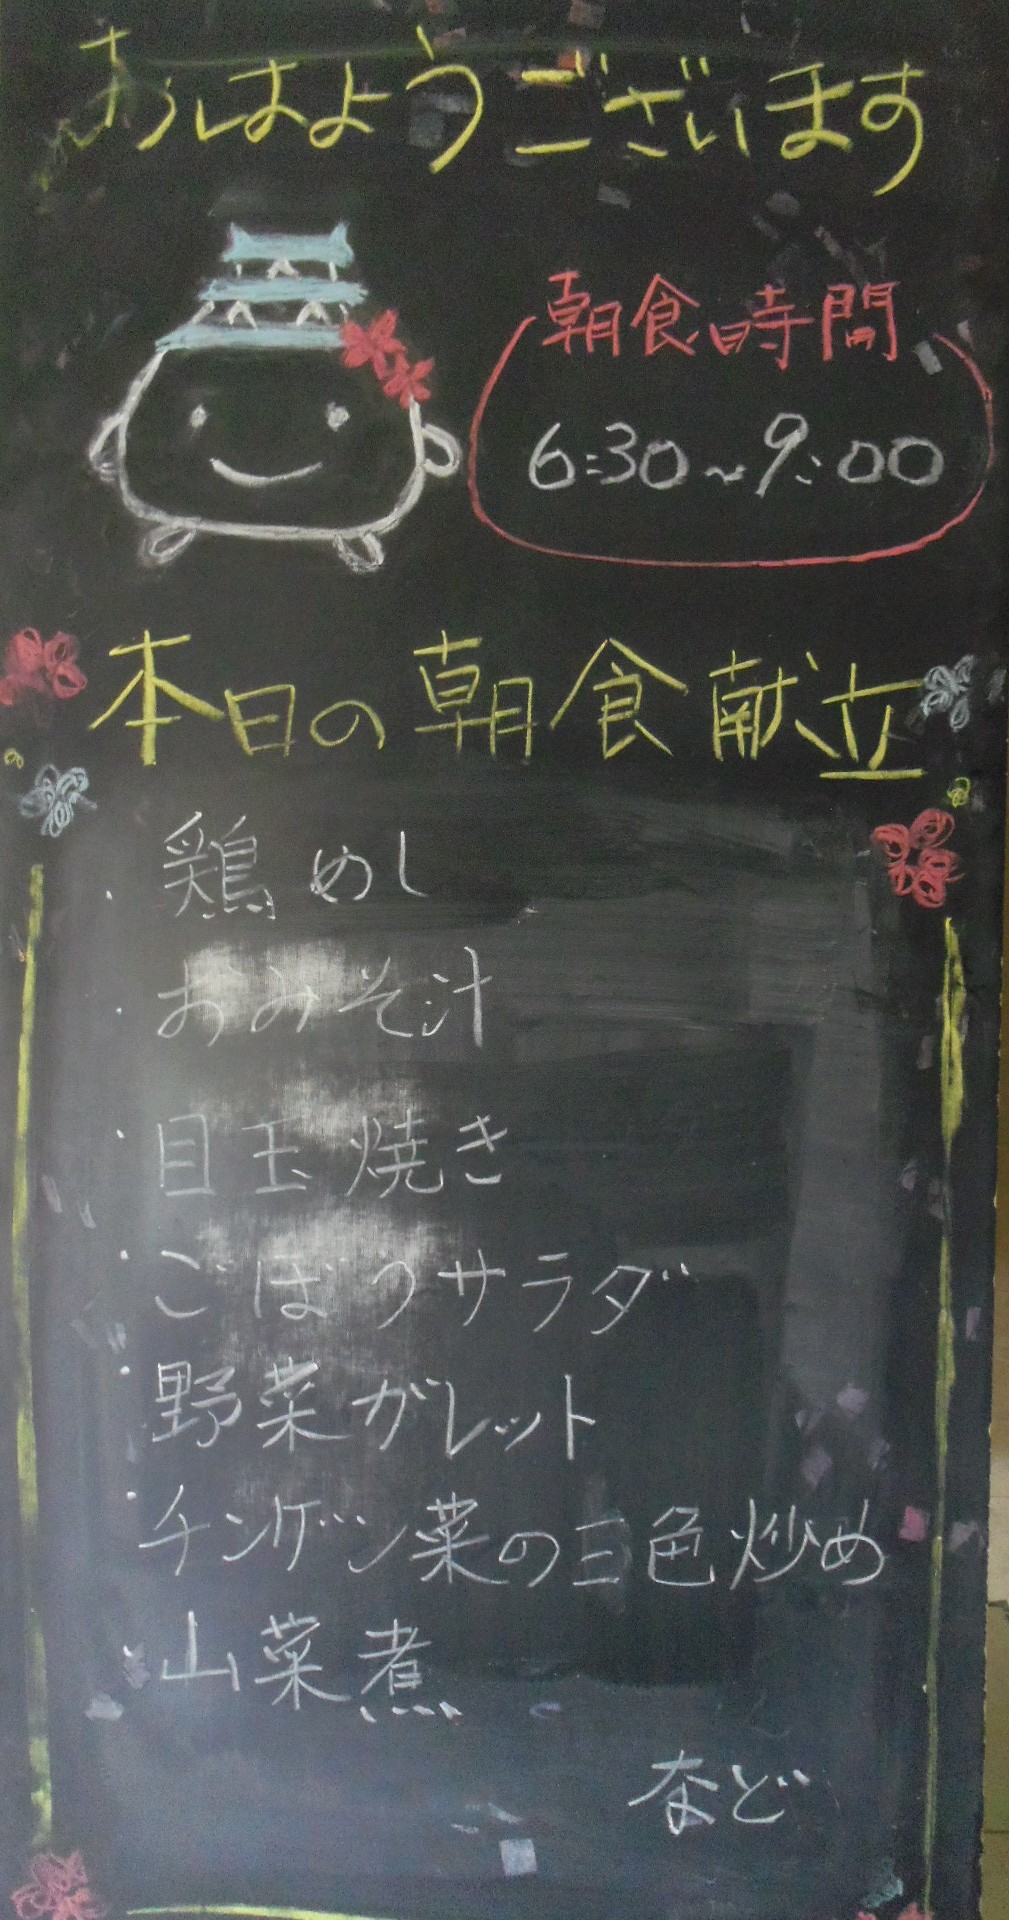 おはようございます
朝食時間
6:30~9:00
本日の朝食献立
・鶏めし
・おみそ汁
・目玉焼き
・ごぼうサラダ
・野菜ガレット
・チンゲン菜の三色炒め
・山菜煮
など